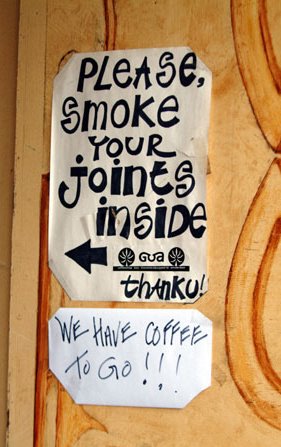 PLEASE,
SMOKE
YOUR
joints
inside
GUA
thanku!
WE HAVE COFFEE
TO GO!!!